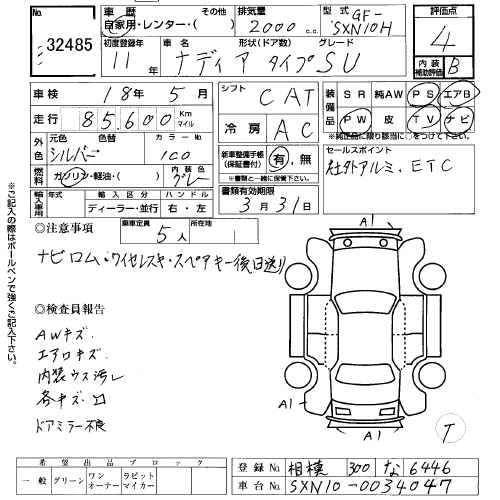 No. 32485
車歴 自家用・レンタ・( ) (その他)
排気量 2000 c.c.
型式 GF-SXN10H
評価点 4
内装補助評価 B
初度登録年 11年
車名 ナディア
形状(ドア数) グレード タイプSU
車検 18年 5月
走行 85,600 Km マイル
シフト CAT
冷房 AC
装備品 SR 純AW PS エアB
PW 皮 TV ナビ
※純正品に限り該当に○をつけて下さい。
外色 元色 シルバー 色替 カラーNo. 1C0
燃料 ガソリン・軽油・( )
内装色 グレー
新車整備手帳(保証書付) 有・無
※書類と一緒に保管して下さい。
書類有効期限 3月31日
セールスポイント
社外アルミ、ETC
輸入車用 年式 輸入区分 ディーラー・並行 ハンドル 右・左
◎注意事項
乗車定員 5人 所在地
ナビロム・ワイヤレスキ・スペアキー後日送り
※ご記入の際はボールペンで強くご記入下さい。
◎検査員報告
AWキズ
エアロキズ
内装ウス汚レ
各キズ凹
ドアミラー不良
A1
A1
A1
T
希望出品ブロック
一般 グリーン ワンオーナー ラビットマイカー
登録No. 相模 300 な 6446
車台No. SXN10-0034047